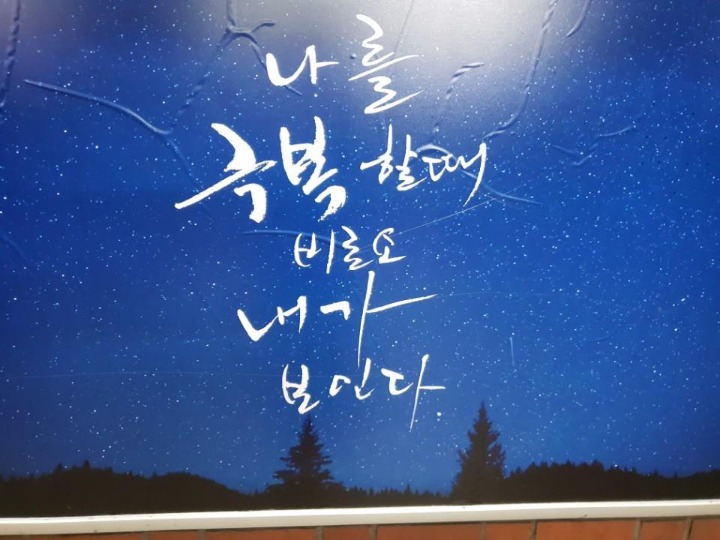 나를
극복 할때
비로소
내가
보인다.